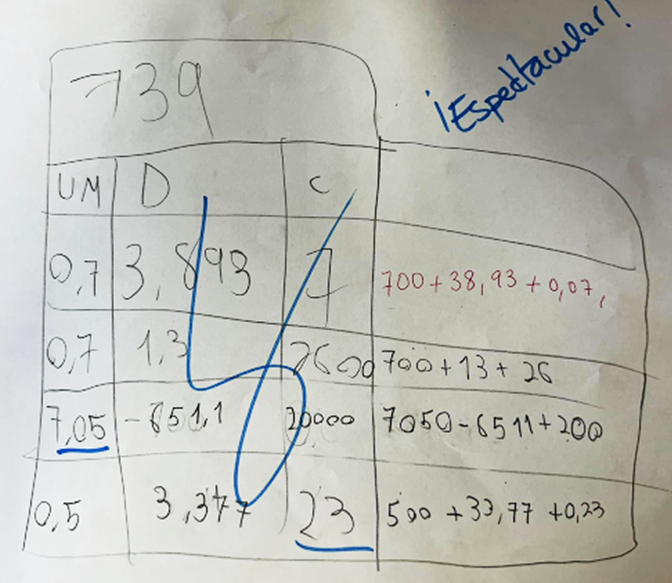 ¡Espectacular!
739
UM D C
0,7 3,893 7 700+38,93+0,07,
0,7 1,3 2600 700+13+26
7,05 -651,1 20000 7050-6511+200
0,5 3,377 23 500+33,77+0,23